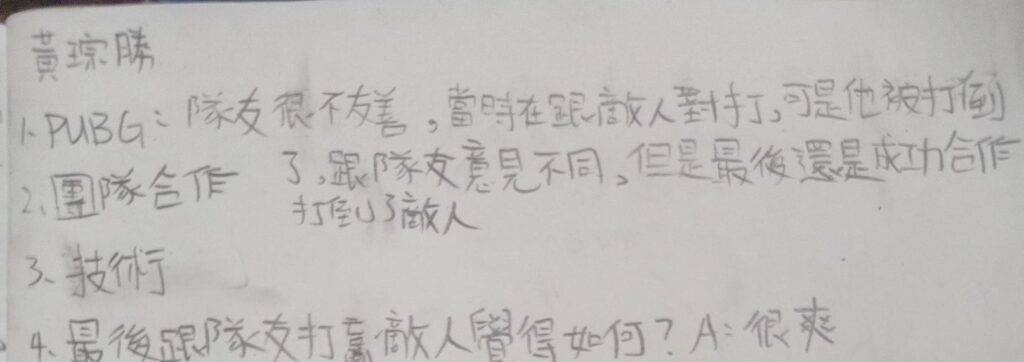 黃琮勝
1、PUBG：隊友很不友善，當時在跟敵人對打，可是他被打倒
了，跟隊友意見不同，但是最後還是成功合作
打倒了敵人
2、團隊合作
3、技術
4、最後跟隊友打贏敵人覺得如何？A：很爽